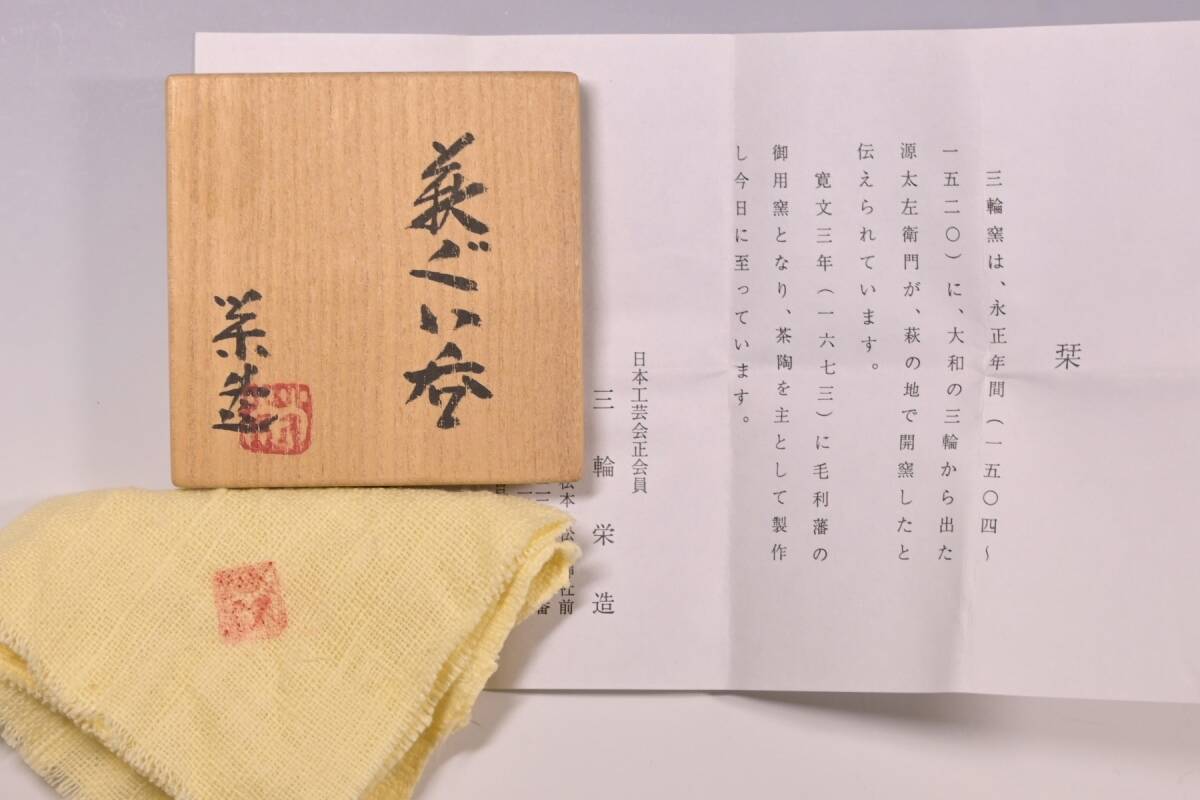 萩ぐい呑
栄造
栞
三輪窯は、永正年間(一五〇四～
一五二〇)に、大和の三輪から出た
源太左衛門が、萩の地で開窯したと
伝えられています。
寛文三年(一六七三)に毛利藩の
御用窯となり、茶陶を主として製作
し今日に至っています。
日本工芸会正会員
三輪栄造
社前
番